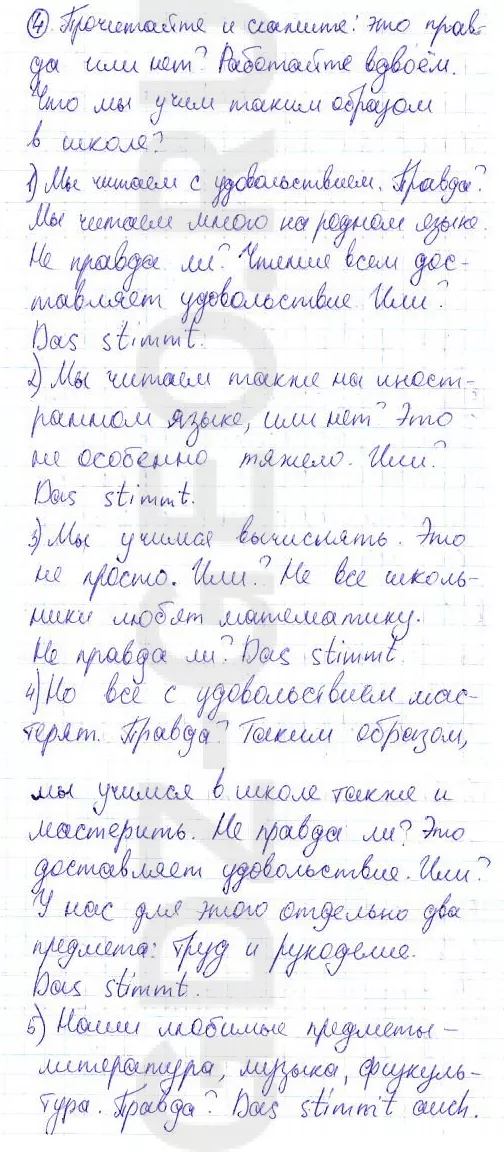 ④ Прочитайте и скажите: это прав-
да или нет? Работайте вдвоём.
Что мы учим таким образом
в школе?
1) Мы читаем с удовольствием. Правда?
Мы читаем много на родном языке.
Не правда ли? Чтение всем дос-
тавляет удовольствие. Или?
Das stimmt.
2) Мы читаем также на иност-
ранном языке, или нет? Это
не особенно тяжело. Или?
Das stimmt.
3) Мы учимся вычислять. Это
не просто. Или? Не все школь-
ники любят математику.
Не правда ли? Das stimmt.
4) Но все с удовольствием мас-
терят. Правда? Таким образом,
мы учимся в школе также и
мастерить. Не правда ли? Это
доставляет удовольствие. Или?
У нас для этого отдельно два
предмета: труд и рукоделие.
Das stimmt.
5) Наши любимые предметы –
литература, музыка, физкуль-
тура. Правда? Das stimmt auch.
GDZ-GEO.RU